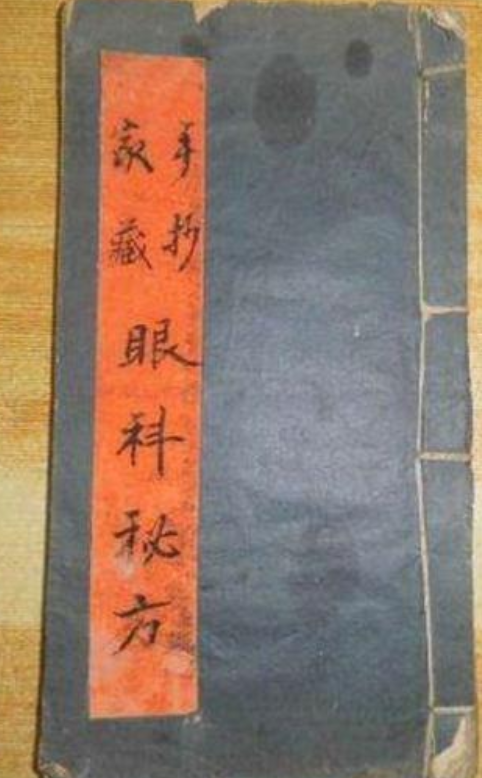 手抄
家藏
眼科秘方